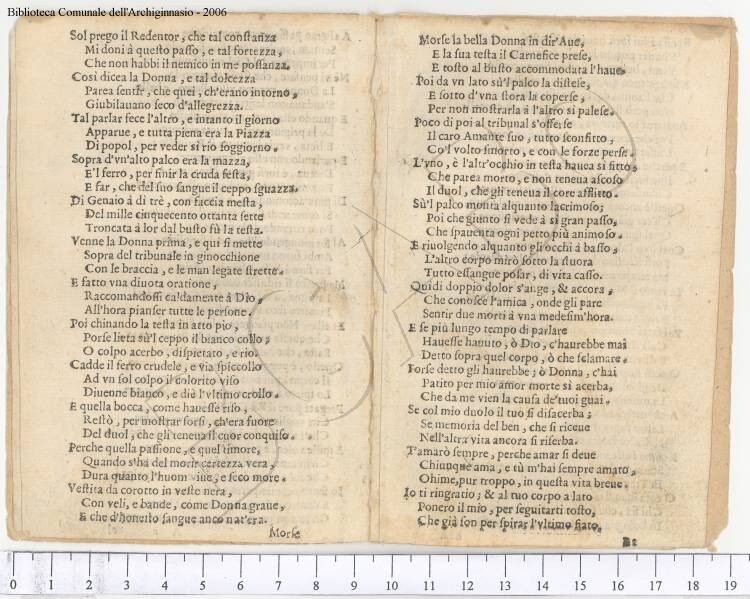 Biblioteca Comunale dell'Archiginnasio - 2006
Sol prego il Redentor, che tal constanza
Mi doni à questo passo, e tal fortezza,
Che non habbi il nemico in me possanza.
Cosi dicea la Donna, e tal dolcezza
Parea sentir, che quei, ch'erano intorno,
Giubilauano seco d'allegrezza.
Tal parlar fece l'altro, e intanto il giorno
Apparue, e tutta piena era la Piazza
Di popol, per veder sì rio soggiorno.
Sopra d'vn'alto palco era la mazza,
E'l ferro, per finir la cruda festa,
E far, che del suo sangue il ceppo sguazza.
Di Genaio à dì trè, con faccia mesta,
Del mille cinquecento ottanta sette
Troncata à lor dal busto fù la testa.
Venne la Donna prima, e qui si mette
Sopra del tribunale in ginocchione
Con le braccia, e le man legate strette.
E fatto vna diuota oratione,
Raccomandossi caldamente à Dio,
All'hora pianser tutte le persone.
Poi chinando la testa in atto pio,
Porse lieta sù'l ceppo il bianco collo;
O colpo acerbo, dispietato, e rio.
Cadde il ferro crudele, e via spiccollo
Ad vn sol colpo il colorito viso
Diuenne bianco, e diè l'vltimo crollo.
E quella bocca, come hauesse riso,
Restò, per mostrar forsi, ch'era fuore
Del duol, che gli teneua il cuor conquiso.
Perche quella passione, e quel timore,
Quando s'ha del morir certezza vera,
Dura quanto l'huom viue, e seco more.
Vestita da corotto in veste nera,
Con veli, e bande, come Donna graue,
E che d'honesto sangue anco nat'era.
Morse
Morse la bella Donna in dir'Aue,
E la sua testa il Carnefice prese,
E tosto al busto accommodata l'haue.
Poi da vn lato sù'l palco la distese,
E sotto d'vna stora la coperse,
Per non mostrarla à l'altro sì palese.
Poco di poi al tribunal s'offerse
Il caro Amante suo, tutto sconfitto,
Co'l volto smorto, e con le forze perse.
L'vno, è l'altr'occhio in testa hauea sì fitto,
Che parea morto, e non teneua ascoso
Il duol, che gli teneua il core afflitto.
Sù'l palco monta alquanto lacrimoso;
Poi che giunto si vede à sì gran passo,
Che spauenta ogni petto più animoso.
E riuolgendo alquanto gli occhi à basso,
L'altro corpo mirò sotto la stuora
Tutto essangue posar, di vita casso.
Quidi doppio dolor s'ange, & accora,
Che conosce l'amica, onde gli pare
Sentir due morti à vna medesim'hora.
E se più lungo tempo di parlare
Hauesse hauuto, ò Dio, c'haurebbe mai
Detto sopra quel corpo, ò che sclamare.
Forse detto gli haurebbe; ò Donna, c'hai
Patito per mio amor morte sì acerba,
Che da me vien la causa de'tuoi guai.
Se col mio duolo il tuo si disacerba;
Se memoria del ben, che si riceue
Nell'altra vita ancora si riserba.
T'amarò sempre, perche amar si deue
Chiunque ama, e tù m'hai sempre amato,
Ohime, pur troppo, in questa vita breue.
Io ti ringratio; & al tuo corpo a lato
Ponero il mio, per seguitarti tosto,
Che già son per spirar l'vltimo fiato.
0 1 2 3 4 5 6 7 8 9 10 11 12 13 14 15 16 17 18 19